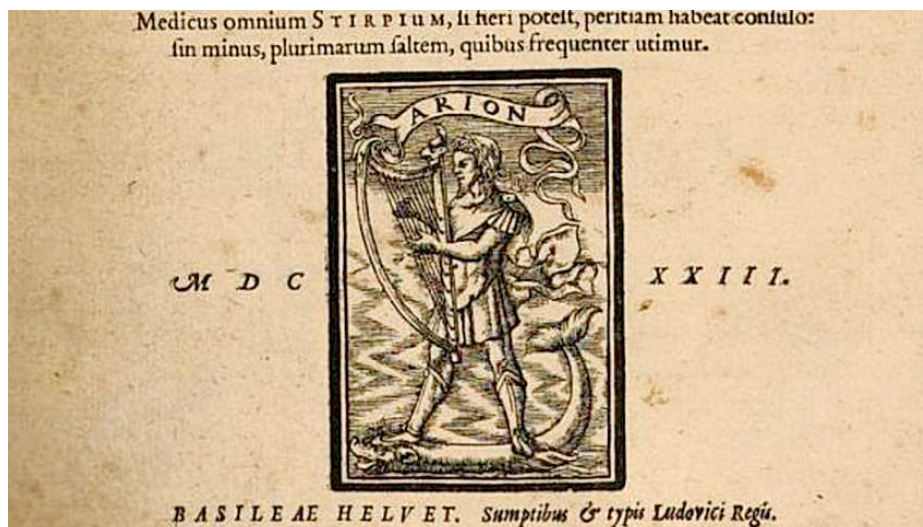 Medicus omnium STIRPIUM, ſi fieri poteſt, peritiam habeat conſulo:
ſin minus, plurimarum ſaltem, quibus frequenter utimur.
ARION
M D C XXIII.
BASILEAE HELVET. Sumptibus & typis Ludovici Regis.